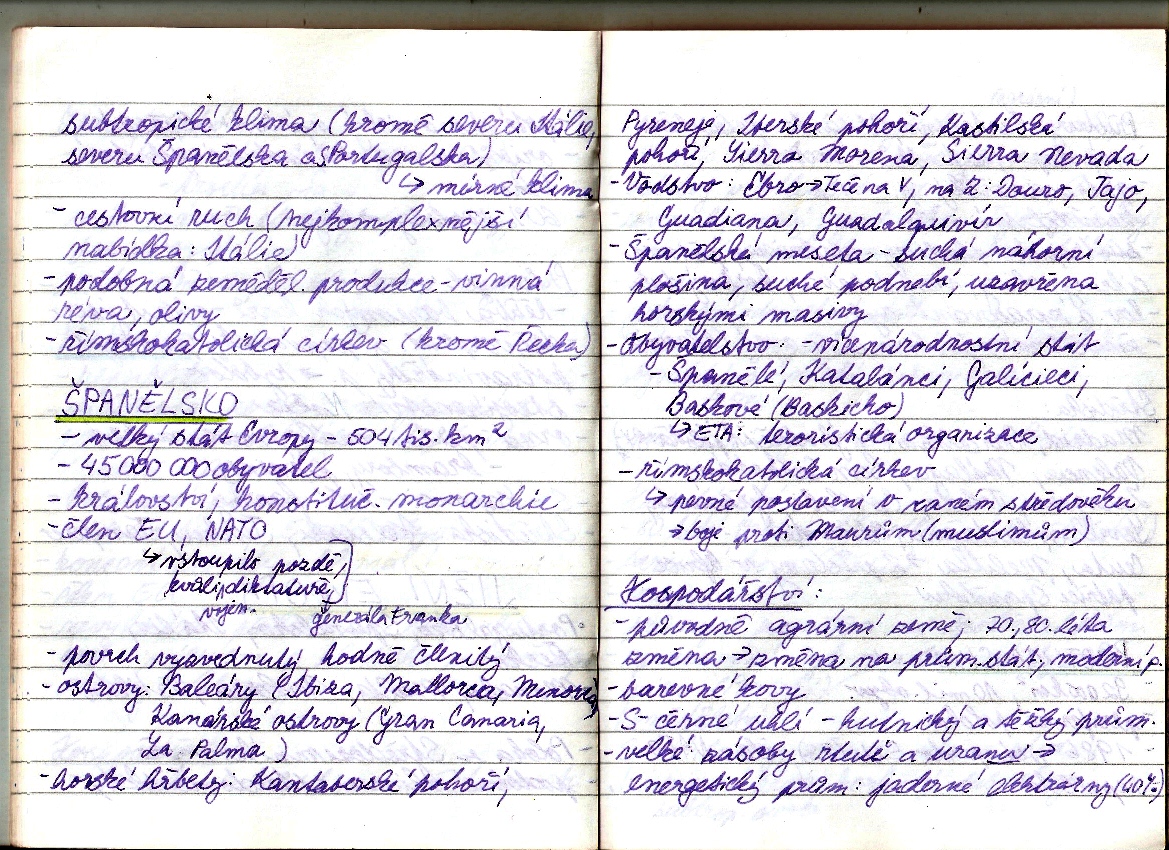 subtropické klima (kromě severu Itálie,
severu Španělska a Portugalska)
↳ mírné klima
- cestovní ruch (nejkomplexnější
nabídka: Itálie)
- podobná zeměděl. produkce - vinná
réva, olivy
- římskokatolická církev (kromě Řecka)
ŠPANĚLSKO
- velký stát Evropy - 504 tis. km²
- 45 000 000 obyvatel
- království, konstituč. monarchie
- člen EU, NATO
↳ vstoupilo pozdě,
kvůli diktatuře
vojen. generála Franka
- povrch vyzvednutý, hodně členitý
- ostrovy: Baleáry (Ibiza, Mallorca, Menorca)
Kanárské ostrovy (Gran Canaria,
La Palma)
- horské hřbety: Kantaberské pohoří,
Pyreneje, Iberské pohoří, Kastilská
pohoří, Sierra Morena, Sierra Nevada
- Vodstvo: Ebro → teče na V, na Z: Douro, Tajo,
Guadiana, Guadalquivir
- Španělská meseta - suchá náhorní
plošina, suché podnebí, uzavřena
horskými masivy
- Obyvatelstvo: - vícenárodnostní stát
- Španělé, Katalánci, Galicijci,
Baskové (Baskicko)
↳ ETA: teroristická organizace
- římskokatolická církev
↳ pevné postavení v raném středověku
→ boje proti Maurům (muslimům)
Hospodářství:
- původně agrární země; 70., 80. léta
změna → změna na prům. stát, moderní p.
- barevné kovy
- S - černé uhlí - hutnický a těžký prům.
- velké zásoby rtuti a uranu →
energetický prům: jaderné elektrárny (40%)